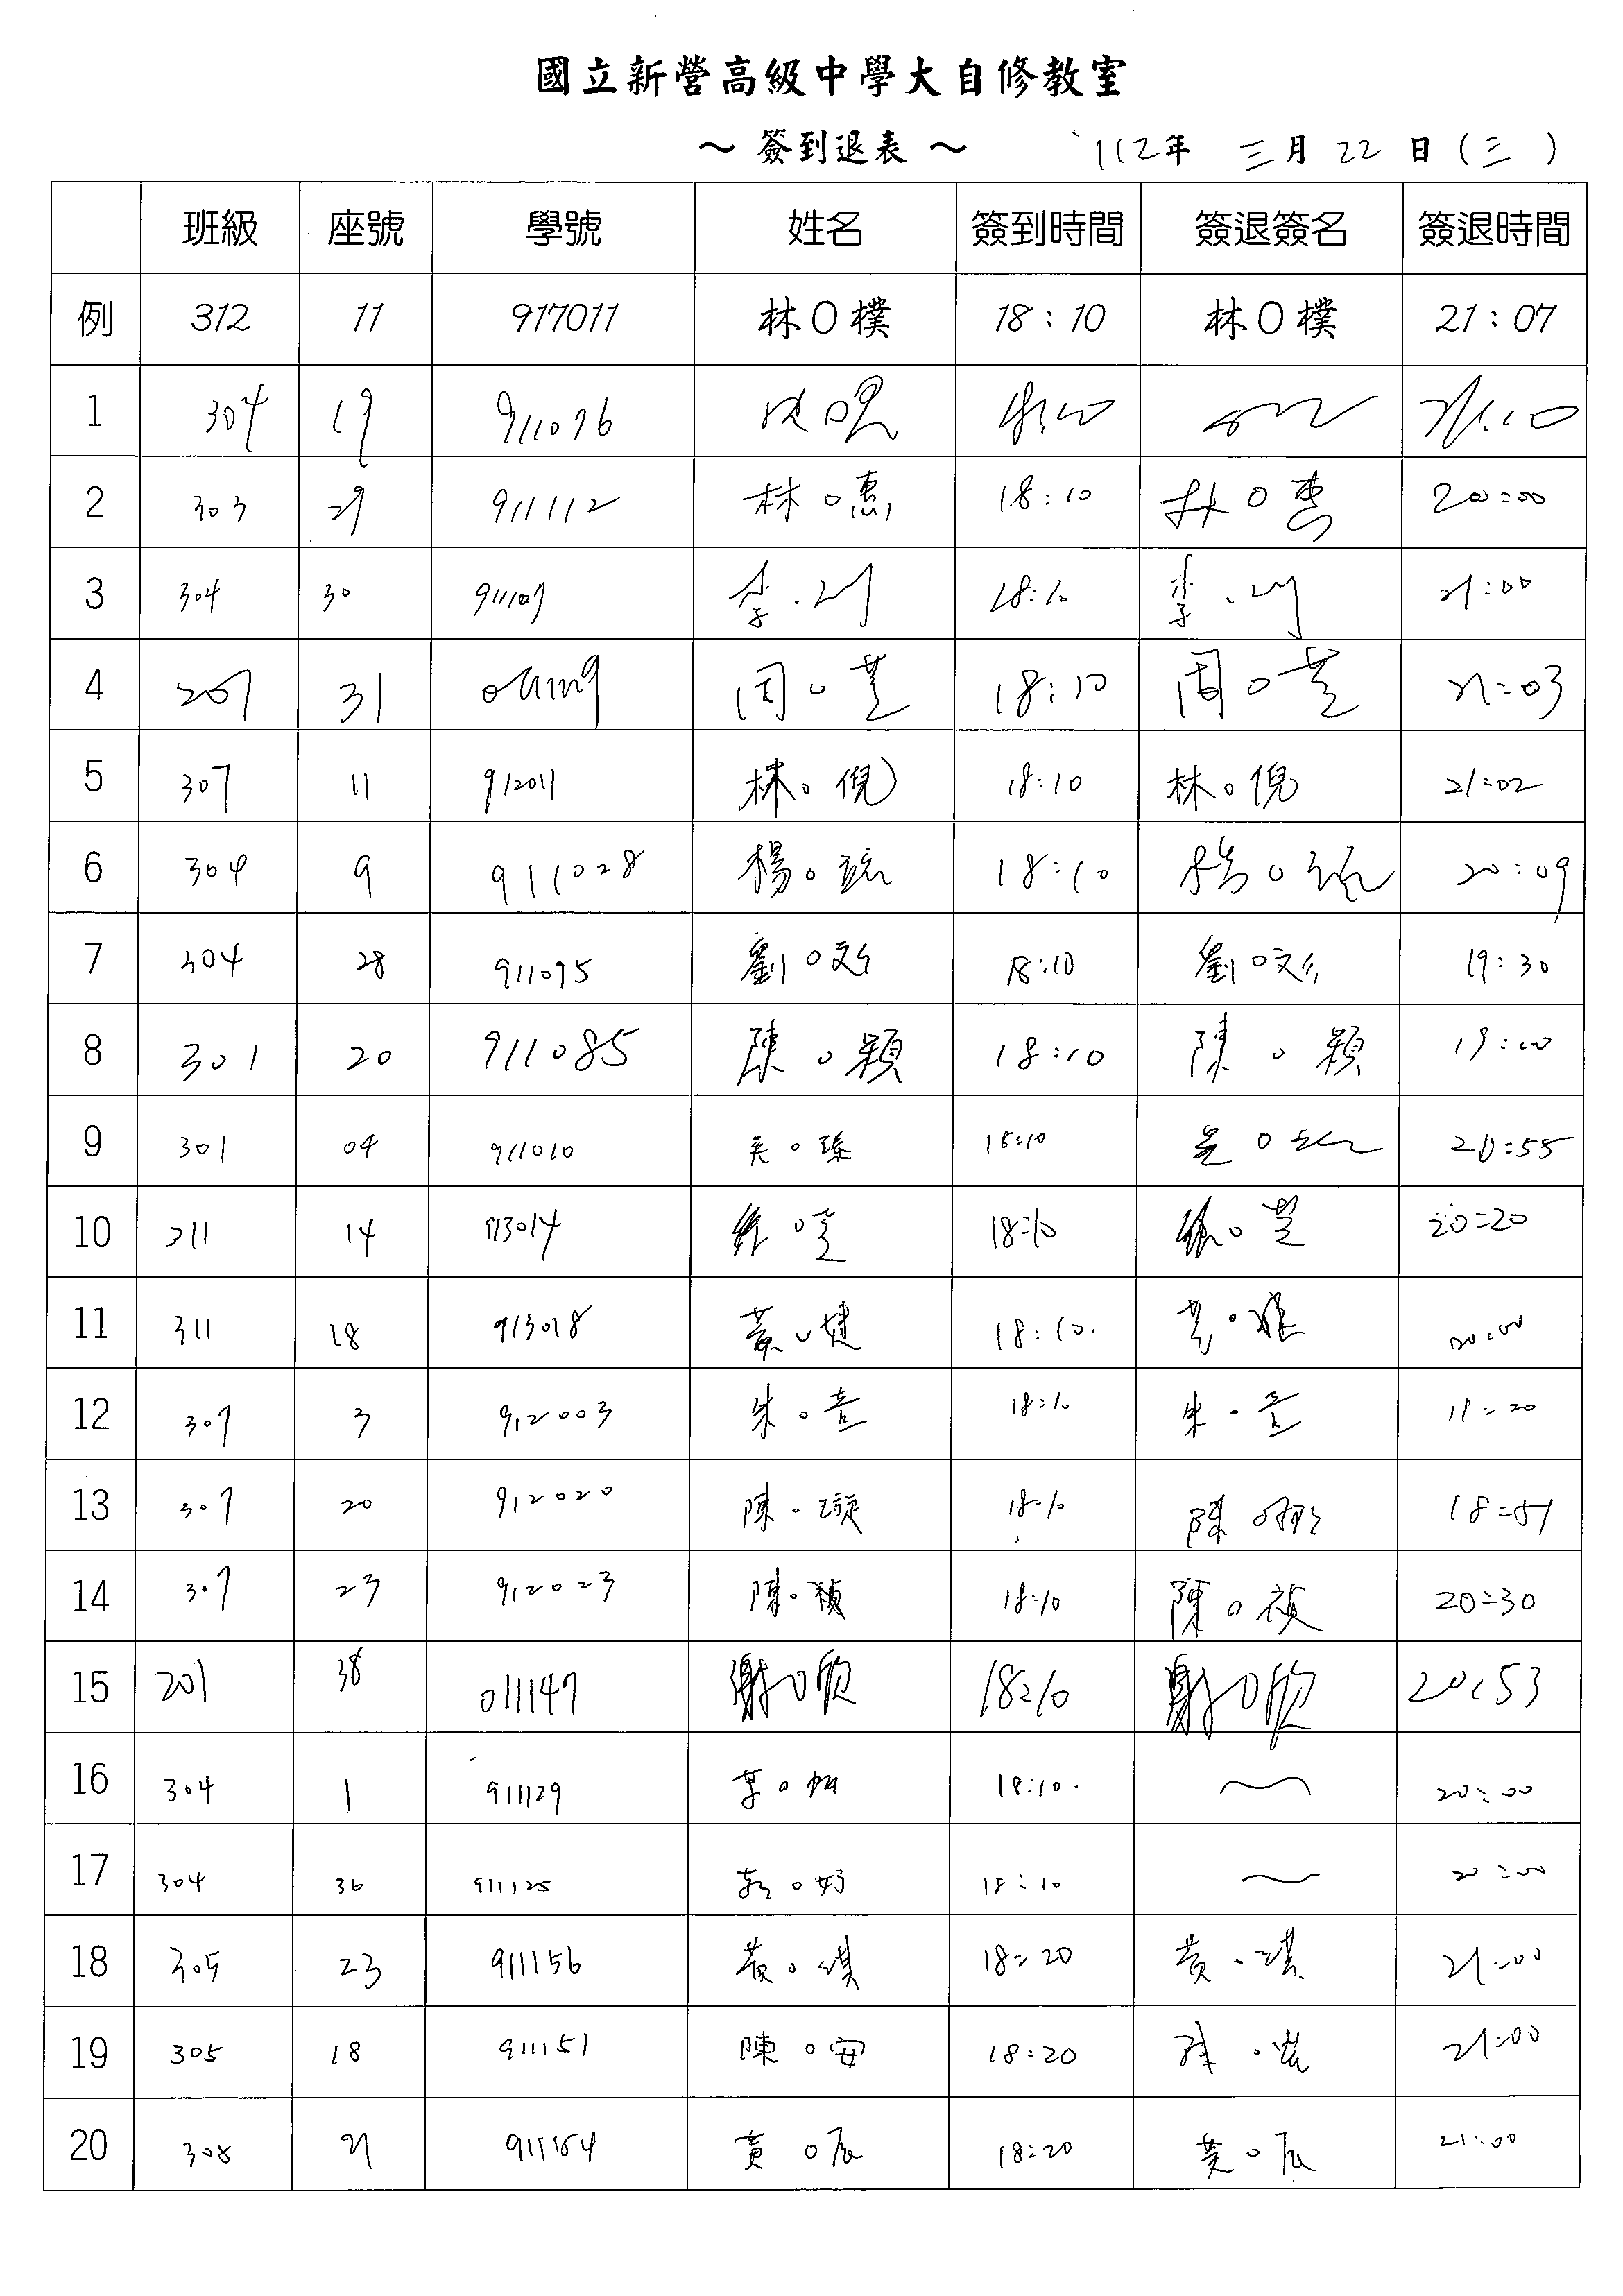 國立新營高級中學大自修教室
～ 簽到退表 ～ 112年 三月 22 日 (三)
班級 座號 學號 姓名 簽到時間 簽退簽名 簽退時間
例 312 11 917011 林〇樸 18:10 林〇樸 21:07
1 304 19 911076
2 303 29 911112 林〇惠 18:10 林〇惠 20:00
3 304 30 911107 李 18:10 李 21:00
4 207 31 周〇萱 18:10 周〇萱 21:03
5 307 11 912011 林〇倪 18:10 林〇倪 21:02
6 304 9 911028 楊〇 18:10 楊〇 20:09
7 304 28 911095 劉〇彣 18:10 劉〇彣 19:30
8 301 20 911085 陳〇穎 18:10 陳〇穎 19:00
9 301 04 911010 吳〇臻 18:10 吳〇 20:55
10 311 14 913014 18:10 20:20
11 311 18 913018 黃〇婕 18:10 20:00
12 307 3 912003 朱〇萱 18:10 朱〇萱 19:20
13 307 20 912020 陳〇璇 18:10 陳〇 18:51
14 307 23 912023 陳〇禎 18:10 陳〇禎 20:30
15 201 38 011147 謝〇欣 18:10 謝〇欣 20:53
16 304 1 911129 葉〇 18:10 20:00
17 304 36 911125 18:10 20:00
18 305 23 911156 黃〇琪 18:20 黃〇琪 21:00
19 305 18 911151 陳〇安 18:20 21:00
20 308 21 911164 黃〇辰 18:20 黃〇辰 21:00